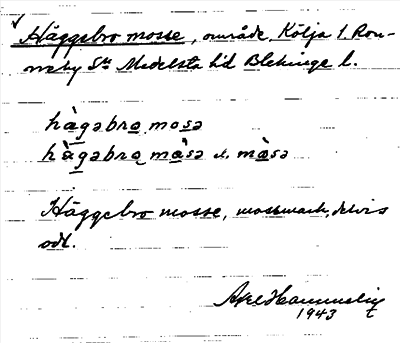 Häggebro mosse, område, Kölja 1 Ron-
neby Sn Medelsta hd Blekinge l.
hàgəbro mosə
hàgəbro màsə el. màsə
Häggebro mosse, mossmark, delvis
odl.
Axel
1943